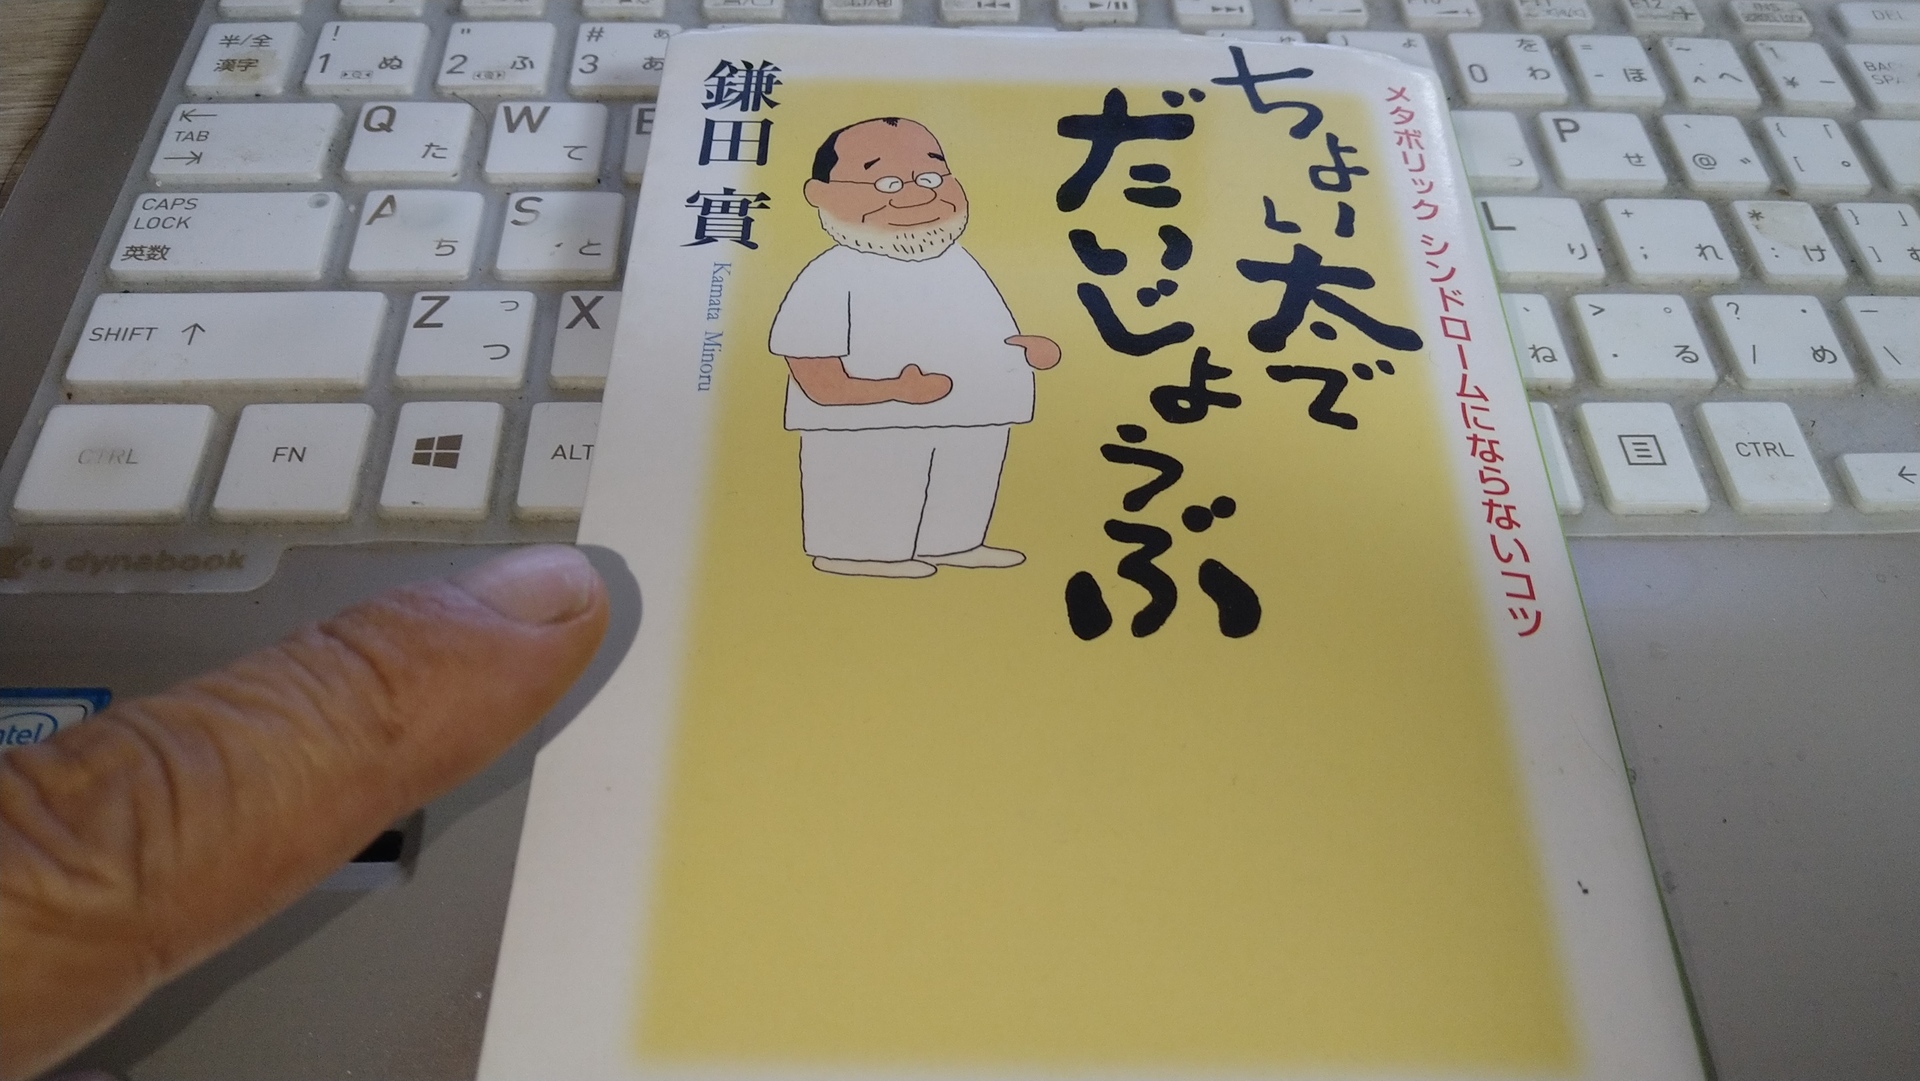 メタボリック シンドロームにならないコツ
ちょい太で
だいじょうぶ
鎌田 實
Kamata Minoru
半/全
漢字
!
1 ぬ
"
2 ふ
#
3 あ
を
0 わ
=
- ほ
~
^ へ
¥ ー
TAB
Q た
W て
E
P せ
@
CAPS
LOCK
英数
A ち
S と
L り
+
; れ
*
: け
SHIFT ↑
Z っ
つ
X
ね
>
. る
?
/ め
CTRL
FN
ALT
CTRL
dynabook
intel
DEL
F12